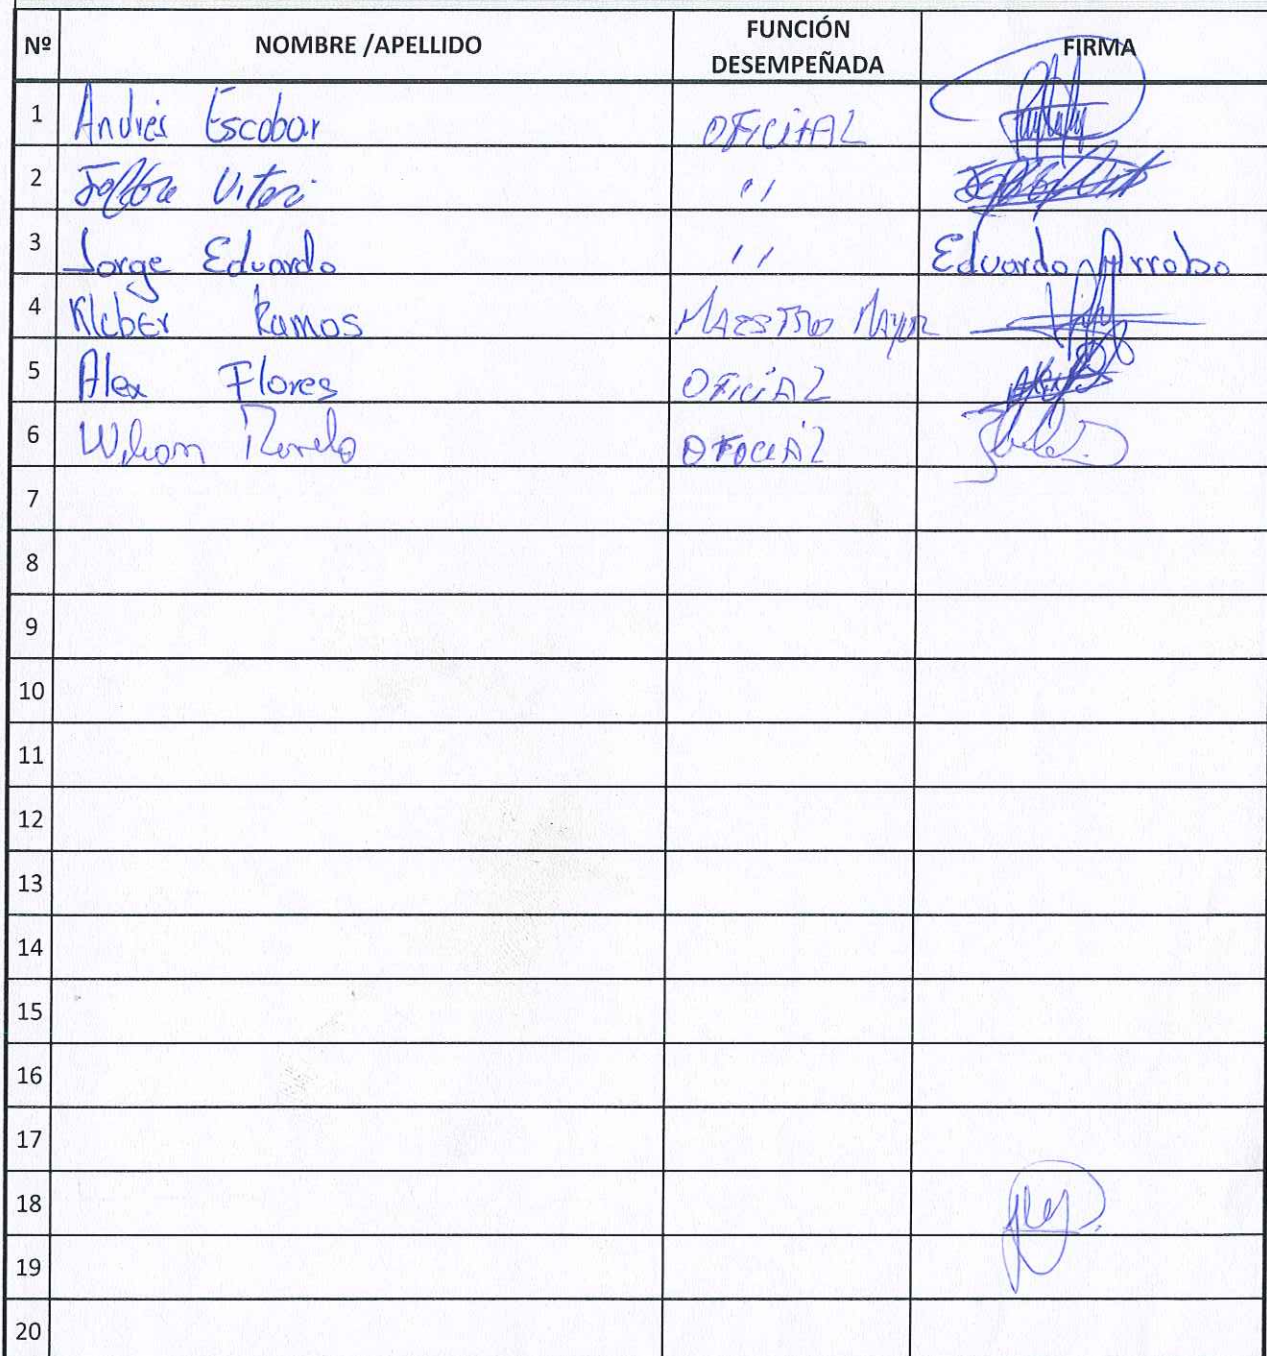 Nº NOMBRE /APELLIDO FUNCIÓN DESEMPEÑADA FIRMA
1 Andrés Escobar OFICIAL
2 Viteri ''
3 Jorge Eduardo '' Eduardo Arrobo
4 Kleber Ramos MAESTRO MAYOR
5 Alex Flores OFICIAL
6 Wilson OFOCIAL
7
8
9
10
11
12
13
14
15
16
17
18
19
20